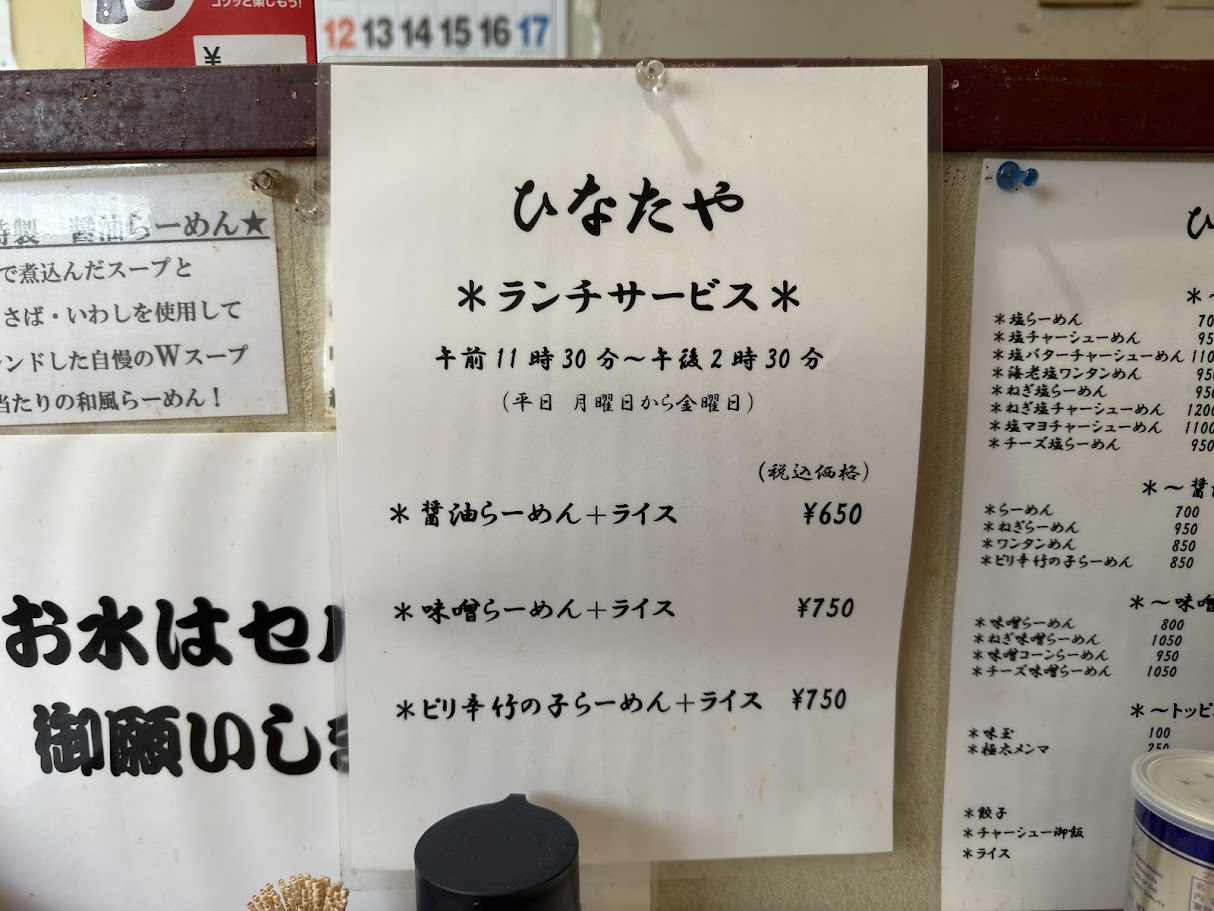 コクッと楽しもう!
¥
12 13 14 15 16 17
醤油らーめん★
で煮込んだスープと
さば・いわしを使用して
ンドした自慢のWスープ
当たりの和風らーめん!
お水はセル
御願いしま
ひなたや
*ランチサービス*
午前11時30分~午後2時30分
(平日 月曜日から金曜日)
(税込価格)
*醤油らーめん+ライス ¥650
*味噌らーめん+ライス ¥750
*ピリ辛竹の子らーめん+ライス ¥750
ひ
*~
*塩らーめん 70
*塩チャーシューめん 95
*塩バターチャーシューめん 110
*海老塩ワンタンめん 950
*ねぎ塩らーめん 950
*ねぎ塩チャーシューめん 1200
*塩マヨチャーシューめん 1100
*チーズ塩らーめん 950
*~醤
*らーめん 700
*ねぎらーめん 950
*ワンタンめん 850
*ピリ辛竹の子らーめん 850
*~味噌
*味噌らーめん 800
*ねぎ味噌らーめん 1050
*味噌コーンらーめん 950
*チーズ味噌らーめん 1050
*~トッピ
*味玉 100
*極太メンマ 250
*餃子
*チャーシュー御飯
*ライス